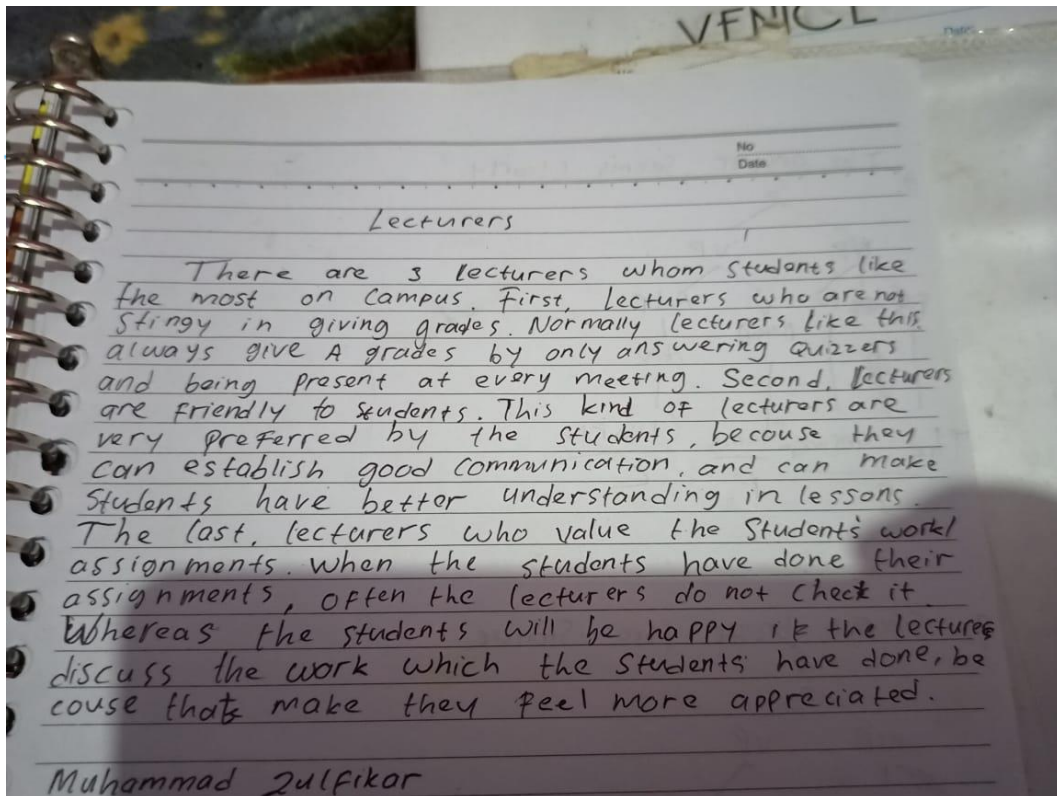 VENICE
No
Date
Lecturers
There are 3 lecturers whom students like
the most on campus. First, lecturers who are not
stingy in giving grades. Normally lecturers like this
always give A grades by only answering Quizzers
and being present at every meeting. Second, lecturers
are friendly to students. This kind of lecturers are
very preferred by the students, becouse they
can establish good communication, and can make
students have better understanding in lessons.
The last, lecturers who value the Student's work/
assignments. When the students have done their
assignments, often the lecturers do not check it.
Whereas the students will be happy if the lectures
discuss the work which the students have done, be
couse that make they feel more appreciated.
Muhammad Zulfikar